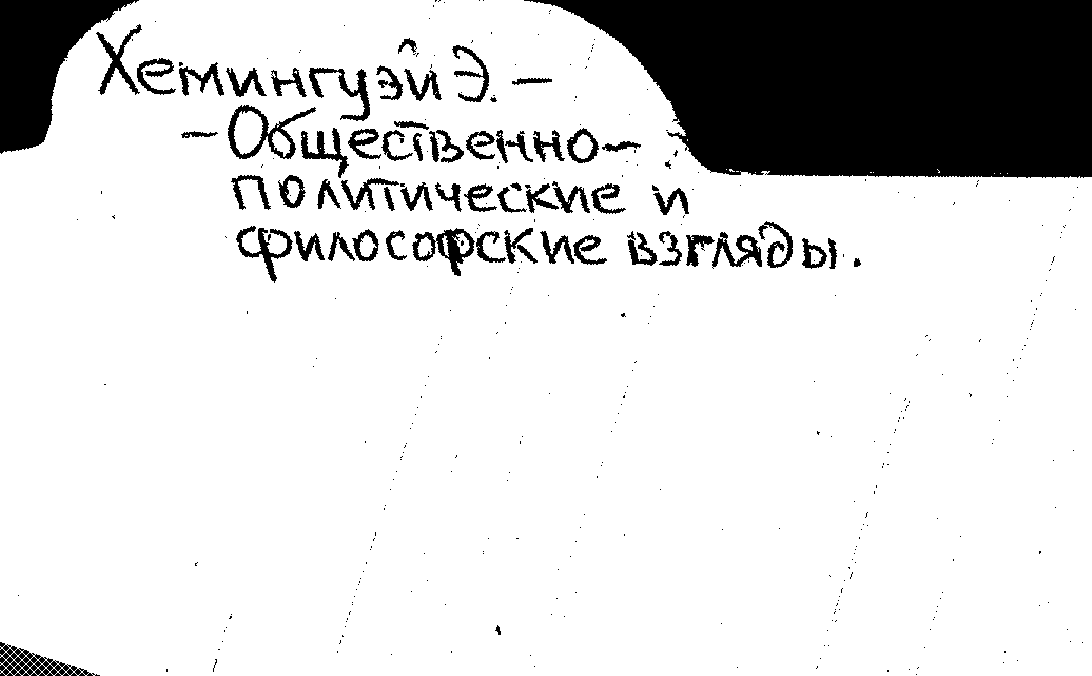 Хемингуэй Э. —
— Общественно-
политические и
философские взгляды.